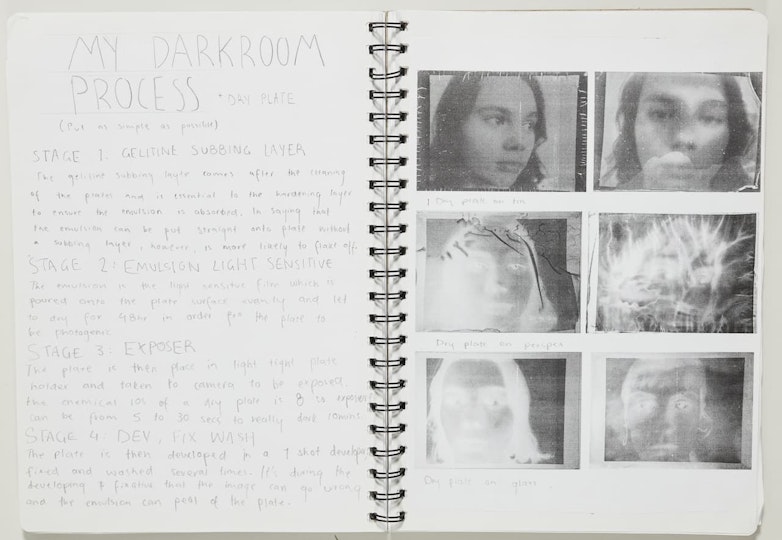 MY DARKROOM
PROCESS + DRY PLATE
(Put as simple as possible)
STAGE 1. GELITINE SUBBING LAYER
The gelitine subbing layer comes after the cleaning
of the plates and is essential to the hardening layer
to ensure the emulsion is absorbed. In saying that
the emulsion can be put straight onto plate without
a subbing layer, however, is more likely to flake off.
STAGE 2: EMULSION LIGHT SENSITIVE
The emulsion is the light sensitive film which is
poured onto the plate surface evenly and let
to dry for 48hr in order for the plate to
be photogenic
STAGE 3: EXPOSER
The plate is then place in light tight plate
holder and taken to camera to be exposed.
the chemical ios of a dry plate is 8 so exposer
can be from 5 to 30 secs to really dark 10mins.
STAGE 4: DEV, FIX WASH
The plate is then developed in a 1 shot developer
fixed and washed several times. It's during the
developing & fixative that the image can go wrong
and the emulsion can peel of the plate.
Dry plate on tin
Dry plate on
Dry plate on glass.